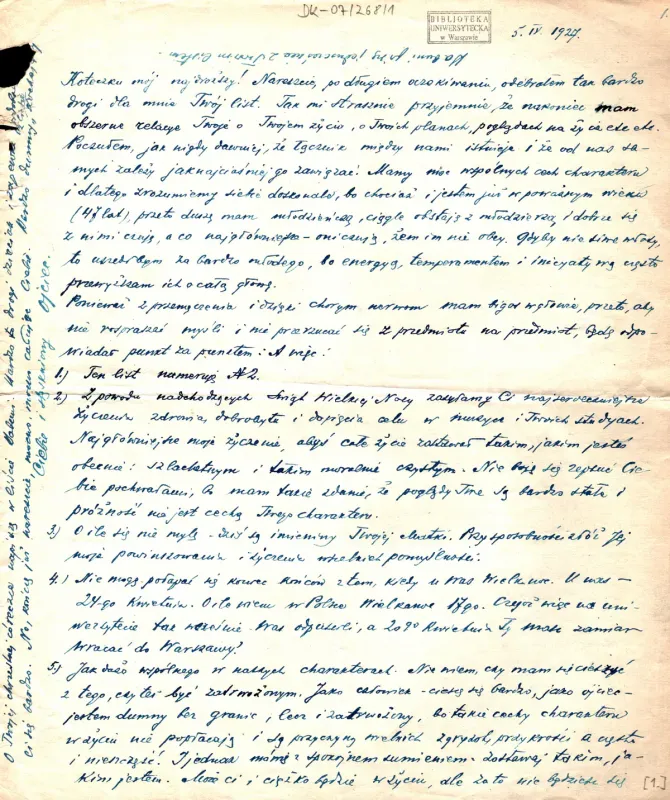 DK-07/268/1
1.
BIBLIOTEKA
UNIWERSYTECKA
w Warszawie
5. IV. 1927.
Koteczku mój najdroższy! Nareszcie, po długiem oczekiwaniu, odebrałem tak bardzo
drogi dla mnie Twój list. Tak mi strasznie przyjemnie, że nakoniec mam
obszerne relacje Twoje o Twojem życiu, o Twoich planach, poglądach na życie etc etc.
Poczułem, jak nigdy dawniej, że łącznik między nami istnieje i że od nas sa-
mych zależy jaknajciaśniej go zawiązać! Mamy moc wspólnych cech charakteru
i dlatego zrozumiemy siebie doskonale, bo chociaż i jestem już w poważnym wieku
(47 lat), przeto duszę mam młodzieńczą, ciągle obstaję z młodzieżą, i dobrze się
z nimi czuję, a co najgłówniejsze – oni czują, żem im nie obcy. Gdyby nie siwe włosy,
to uszedłbym za bardzo młodego, bo energją, temperamentem i inicjatywą często
przewyższam ich o całą głowę.
Ponieważ z przemęczenia i dzięki chorym nerwom mam bigos w głowie, przeto, aby
nie rozpraszać myśli i nie przerzucać się z przedmiotu na przedmiot, będę odpo-
wiadał punkt za punktem: A więc:
1.) Ten list numeruję № 2.
2.) Z powodu nadchodzących Świąt Wielkiej Nocy zasyłamy Ci najserdeczniejsze
życzenia zdrowia, dobrobytu i dopięcia celu w muzyce i Twoich studjach.
Najgłówniejsze moje życzenie, abyś całe życie zostawał takim, jakim jesteś
obecnie: szlachetnym i takim moralnie czystym. Nie boję się zepsuć Cie-
bie pochwałami, bo mam takie zdanie, że poglądy Twe są bardzo stałe i
próżność nie jest cechą Twego charakteru.
3.) O ile się nie mylę – dziś są imieniny Twojej Matki. Przy sposobności złóż Jej
moje powinszowania i życzenia wszelkich pomyślności.
4.) Nie mogę połapać się koniec końców z tem, kiedy u Was Wielkanoc. U nas –
24-go Kwietnia. O ile wiem w Polsce Wielkanoc 17go. Czyż więc na uni-
wersytecie tak wcześnie Was odpuścili, a 20go kwietnia Ty masz zamiar
wracać do Warszawy?
5.) Jak dużo wspólnego w naszych charakterach. Nie wiem, czy mam się cieszyć
z tego, czy też być zatrwożonym. Jako człowiek – cieszę się bardzo, jako ojciec –
jestem dumny bez granic, lecz i zatrwożony, bo takie cechy charakteru
w życiu nie popłacają i są przyczyną wielkich zgryzot, przykrości a często
i nieszczęść! I jednak mówię z spokojnem sumieniem: zostawaj takim, ja-
kim jesteś. Może ci i ciężko będzie w życiu, ale za to nie będziesz się
[1]
ci się bardzo. No, kończę już nareszcie, mocno, mocno całuję Ciebie. Bardzo dumny, kochający
Ciebie i stęskniony Ojciec.